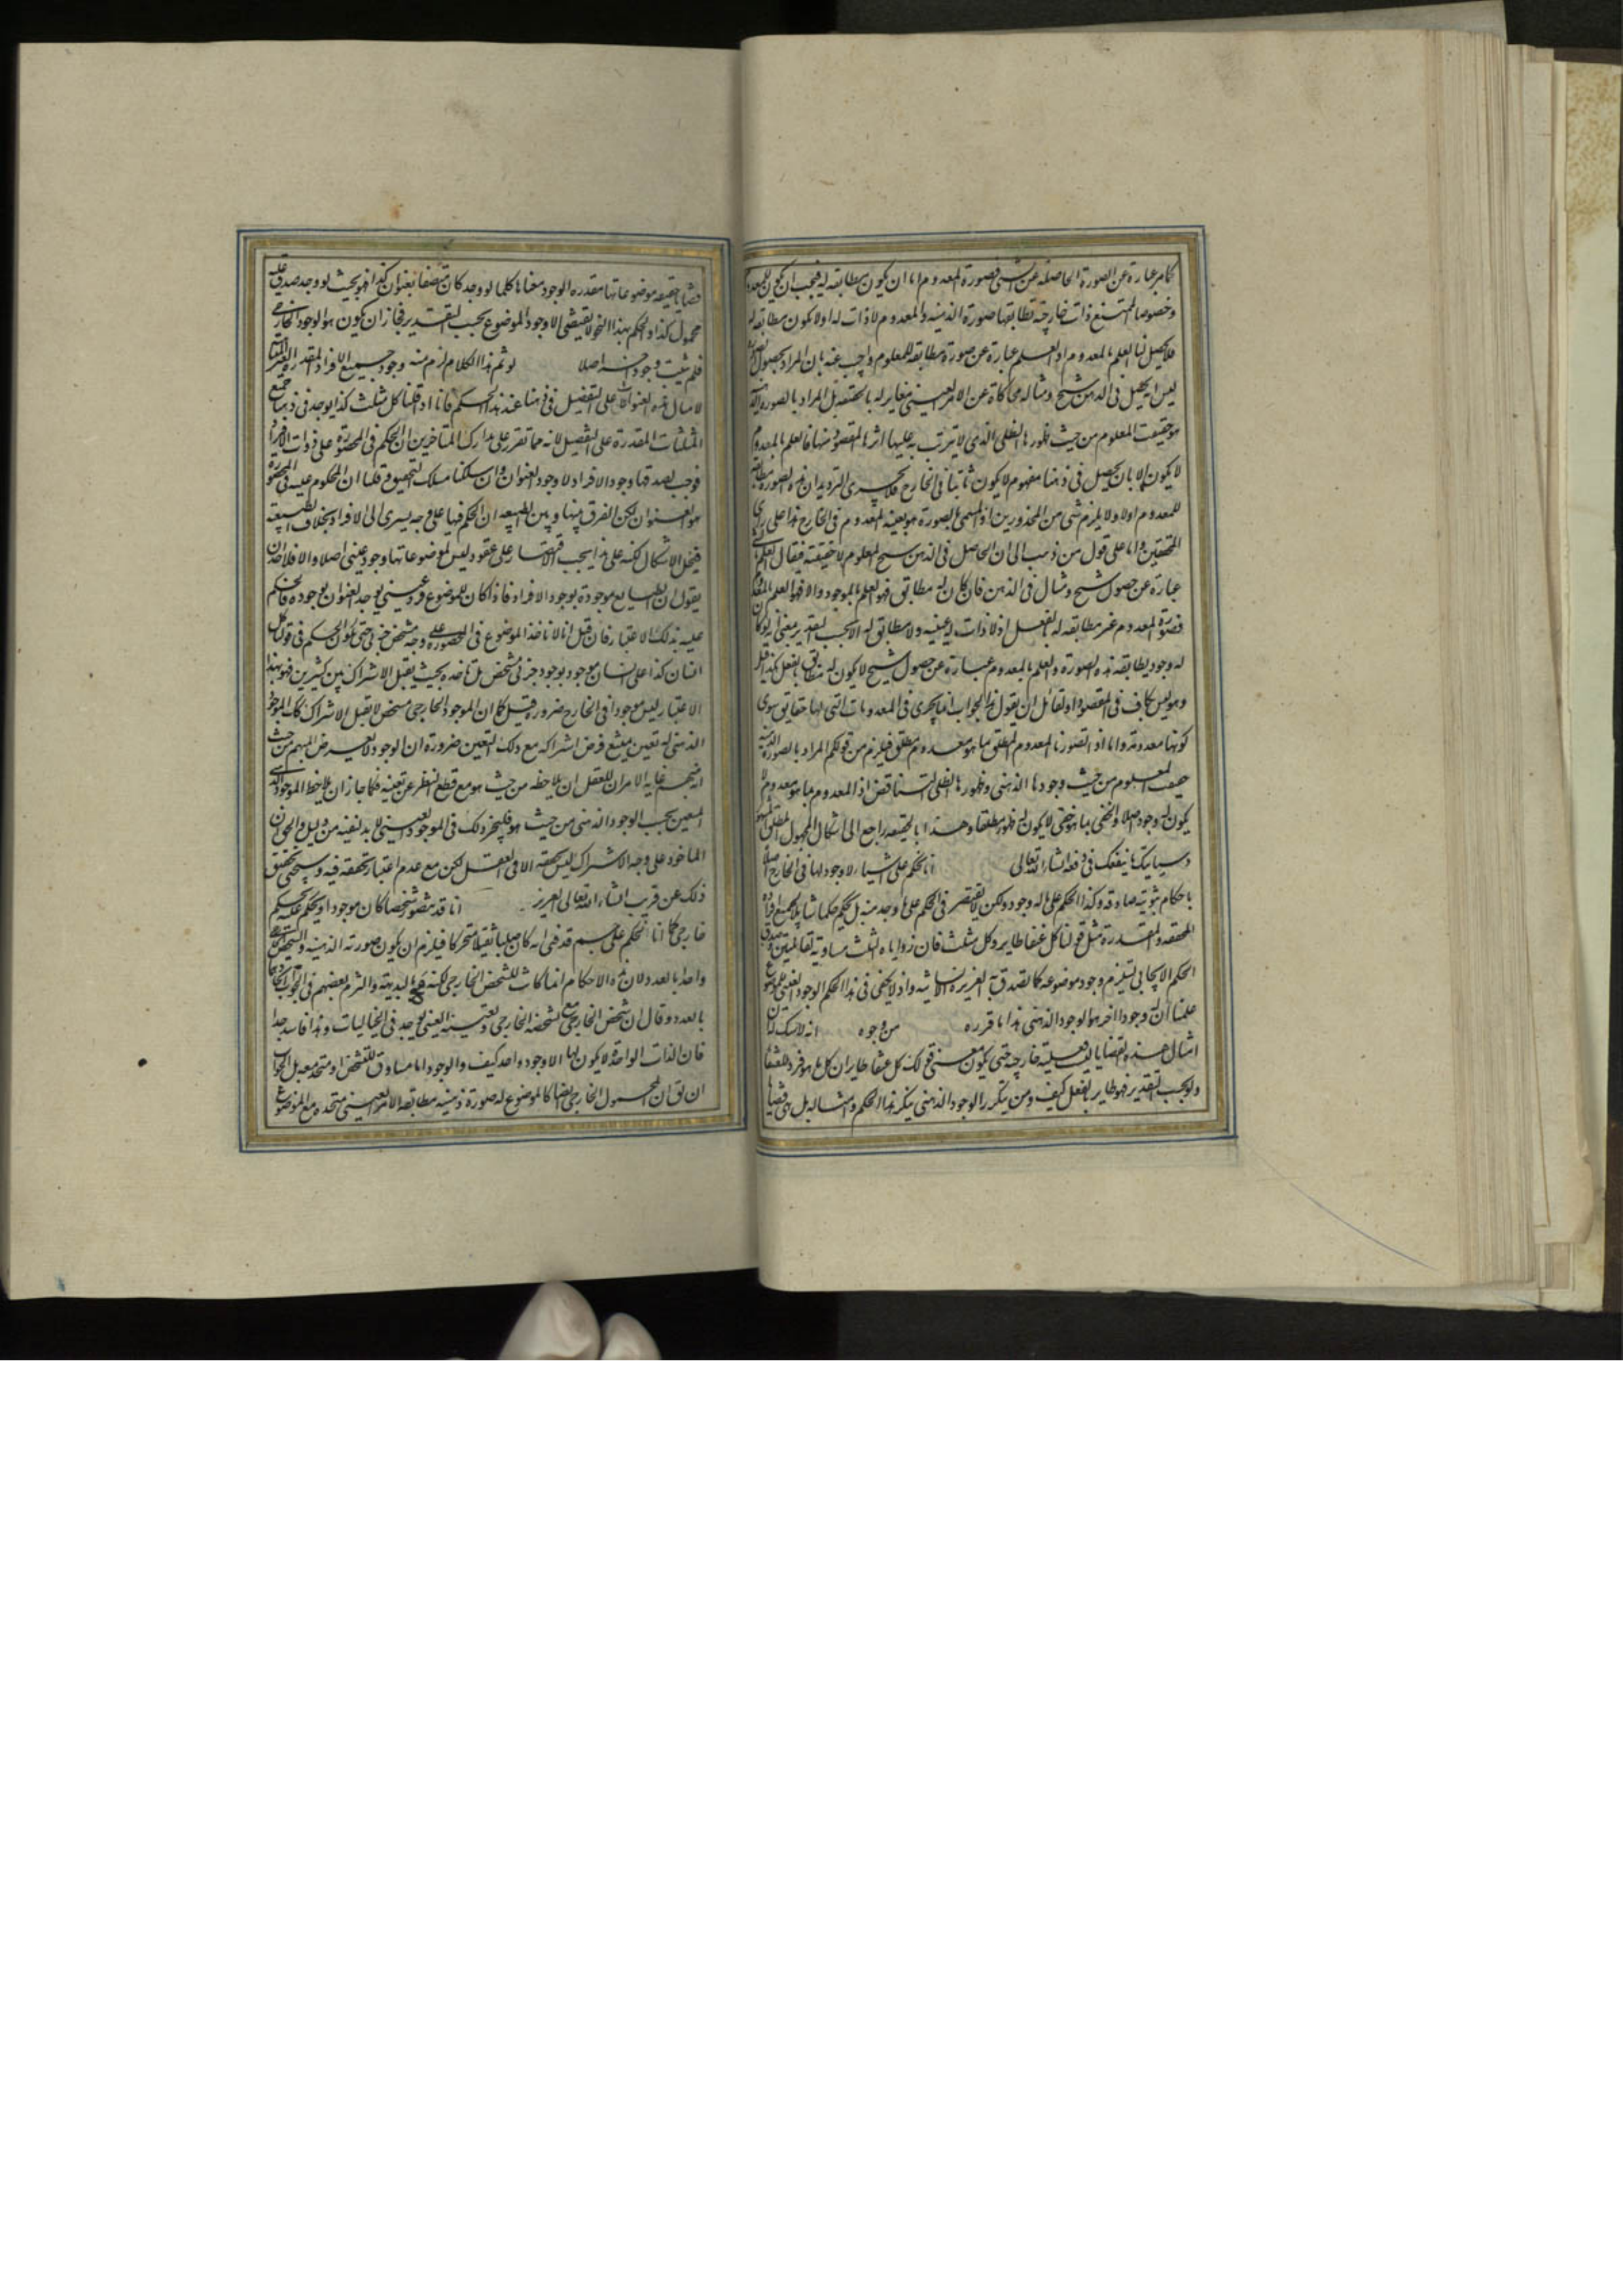 كما مر عبارة عن الصورة الحاصلة عن الشى فصورة المعدوم اما ان يكون مطابقه له فيجب ان يكون للمعدوم
وخصوصا الممتنع ذات خارجية تطابقها صورته الذهنيه والمعدوم لا ذات له او لا يكون مطابقه له
فلا يحصل لنا العلم بالمعدوم اذ العلم عبارة عن صورة مطابقه للمعلوم واجيب عنه بان المراد بحصول الصورة
ليس ان يحصل فى الذهن شبح ومثال له محاكاة عن الامر العينى مغاير له بالحقيقه بل المراد بالصورة الذهنيه
هو حقيقت المعلوم من حيث ظهورها الظلى الذى لا يترتب به عليها اثرها المقصود منها فالعلم بالمعدوم
لا يكون الا بان يحصل فى ذهننا مفهوم لا يكون ثابتا فى الخارج فلا يجرى الترديد ان هذه الصورة مطابقة
للمعدوم او لا ولا يلزم شى من المحذورين اذ المسمى بالصورة هو بعينه المعدوم فى الخارج هذا على راى
المحققين واما على قول من ذهب الى ان الحاصل فى الذهن شبح المعلوم لا حقيقته فيقال العلم بالشى
عبارة عن حصول شبح ومثال فى الذهن فان كان له مطابق فهو العلم بالموجود والا فهو العلم بالمعدوم
فصورة المعدوم غير مطابقه له بالفعل اذ لا ذات له عينيه ولا مطابق له الا بحسب التقدير بمعنى انه لو كان
له وجود يطابقه هذه الصورة والعلم بالمعدوم عبارة عن حصول شبح لا يكون له مطابق بالفعل كذا قيل
وهو ليس بكاف فى المقصود اذ لقائل ان يقول هذا الجواب انما يجرى فى المعدومات التى لها حقايق سوى
كونها معدومة واما اذا تصورنا المعدوم المطلق بما هو معدوم مطلق فيلزم من قولكم المراد بالصورة الذهنيه
حقيقه المعلوم من حيث وجودها الذهنى وظهورها الظلى التناقض اذ المعدوم بما هو معدوم لا
يكون له وجود اصلا والخفى بما هو خفى لا يكون له ظهور مطلقا وهذا بالحقيقه راجع الى اشكال المجهول المطلق
وسياتيك ما ينفعك فى دفعه انشاء الله تعالى انا نحكم على اشياء لا وجود لها فى الخارج اصلا
باحكام ثبوتيه صادقه وكذا الحكم على ما له وجود ولكن لا نقتصر فى الحكم على ما وجد منه بل نحكم حكما شاملا لجميع افراده
المحققه والمقدرة مثل قولنا كل عنقا طاير وكل مثلث فان زواياه الثلث مساوية لقائمتين وصدق
الحكم الايجابى يستلزم وجود موضوعه كما تصدق به الغريزة الانسانيه واذ لا يكفى فى هذا الحكم الوجود العينى للموضوع
علمنا ان له وجودا اخر هو الوجود الذهنى هذا ما قرره من وجوه انه
امثال هذه القضايا ليست فعلية خارجية حتى يكون معنى قولك كل عنقا طاير ان كل ما هو فرد للعنقا
ولو بحسب التقدير فهو طاير بالفعل كيف ومن ينكر الوجود الذهنى ينكر هذا الحكم وامثاله بل هى قضايا
قضايا حقيقيه موضوعاتها مقدره الوجود معناها كلما لو وجد كان متصفا بعنوان كذا فهو بحيث لو وجد صدق عليه
محمول كذا والحكم بهذا النحو لا يقتضى الا وجود الموضوع بحسب التقدير فجاز ان يكون هو الوجود الخارجى
فلم يثبت وجود اخر اصلا لو تم هذا الكلام لزم منه وجود جميع الافراد المقدرة الغير المتناهية
لا مثال هذه العنوانات على التفصيل فى ذهننا عند هذا الحكم فانا اذا قلنا كل مثلث كذا يوجد فى ذهننا جميع
المثلثات المقدرة على التفصيل لانه مما تقرر على مدارك المتاخرين ان الحكم فى المحصورة على ذوات الافراد
فوجب لصدقها وجود الافراد لا وجود العنوان وان سلكنا مسلك التحقيق وقلنا ان المحكوم عليه فى المحصورة
هو العنوان لكن الفرق بينها وبين الطبيعيه ان الحكم فيها على وجه يسرى الى الافراد بخلاف الطبيعية
فينحل الاشكال لكنه على هذا يجب الاقتصار على عقود ليس لموضوعاتها وجود عينى اصلا والا فلاحد ان
يقول ان الطبايع موجودة بوجود الافراد فاذا كان للموضوع فرد عينى يوجد العنوان بوجوده فالحكم
عليه بذلك الاعتبار فان قيل انا لا ناخذ الموضوع فى المحصورة على وجه متشخص جزئى حتى يكون الحكم فى قولنا كل
انسان كذا على انسان موجود بوجود جزئى متشخص بل ناخذه بحيث يقبل الاشتراك بين كثيرين فهو بهذا
الاعتبار ليس موجودا فى الخارج ضرورة قيل كما ان الموجود الخارجى متشخص لا يقبل الاشتراك كذلك الموجود
الذهنى له تعين يمتنع فرض اشتراكه مع ذلك التعين ضرورة ان الوجود لا يعرض المبهم من حيث
انه مبهم غاية الامر ان للعقل ان يلاحظه من حيث هو مع قطع النظر عن تعينه فكما جاز ان يلاحظ الموجود الذهنى
المتعين بحسب الوجود الذهنى من حيث هو فليجز ذلك فى الموجود العينى لا بد لنفيه من دليل والحق ان
الماخوذ على وجه الاشتراك ليس تحققه الا فى العقل لكن مع عدم اعتبار تحققه فيه وسيتحقق
ذلك عن قريب انشاء الله تعالى العزيز انا قد نتصور شخصا كان موجودا ونحكم عليه بحكم
خارجى كما انا نحكم على جسم قد فنى انه كان صلبا ثقيلا متحركا فيلزم ان يكون صورته الذهنيه والشخص
واحدا بالعدد ولان هذه الاحكام انما كانت للشخص الخارجى لكنه البديهة والتزم بعضهم فى الجواب
بالعدد وقال ان شخص الخارجى مع تشخصه الخارجى وتعينه العينى يوجد فى الخياليات وهذا فاسد جدا
فان الذات الواحدة لا يكون لها الا وجود واحد كيف والوجود اما مساوق للتشخص او متحد معه بل الجواب
ان يق ان المحمول الخارجى ايضا كالموضوع له صورة ذهنيه مطابقه الامر العينى متحده مع الموضوع